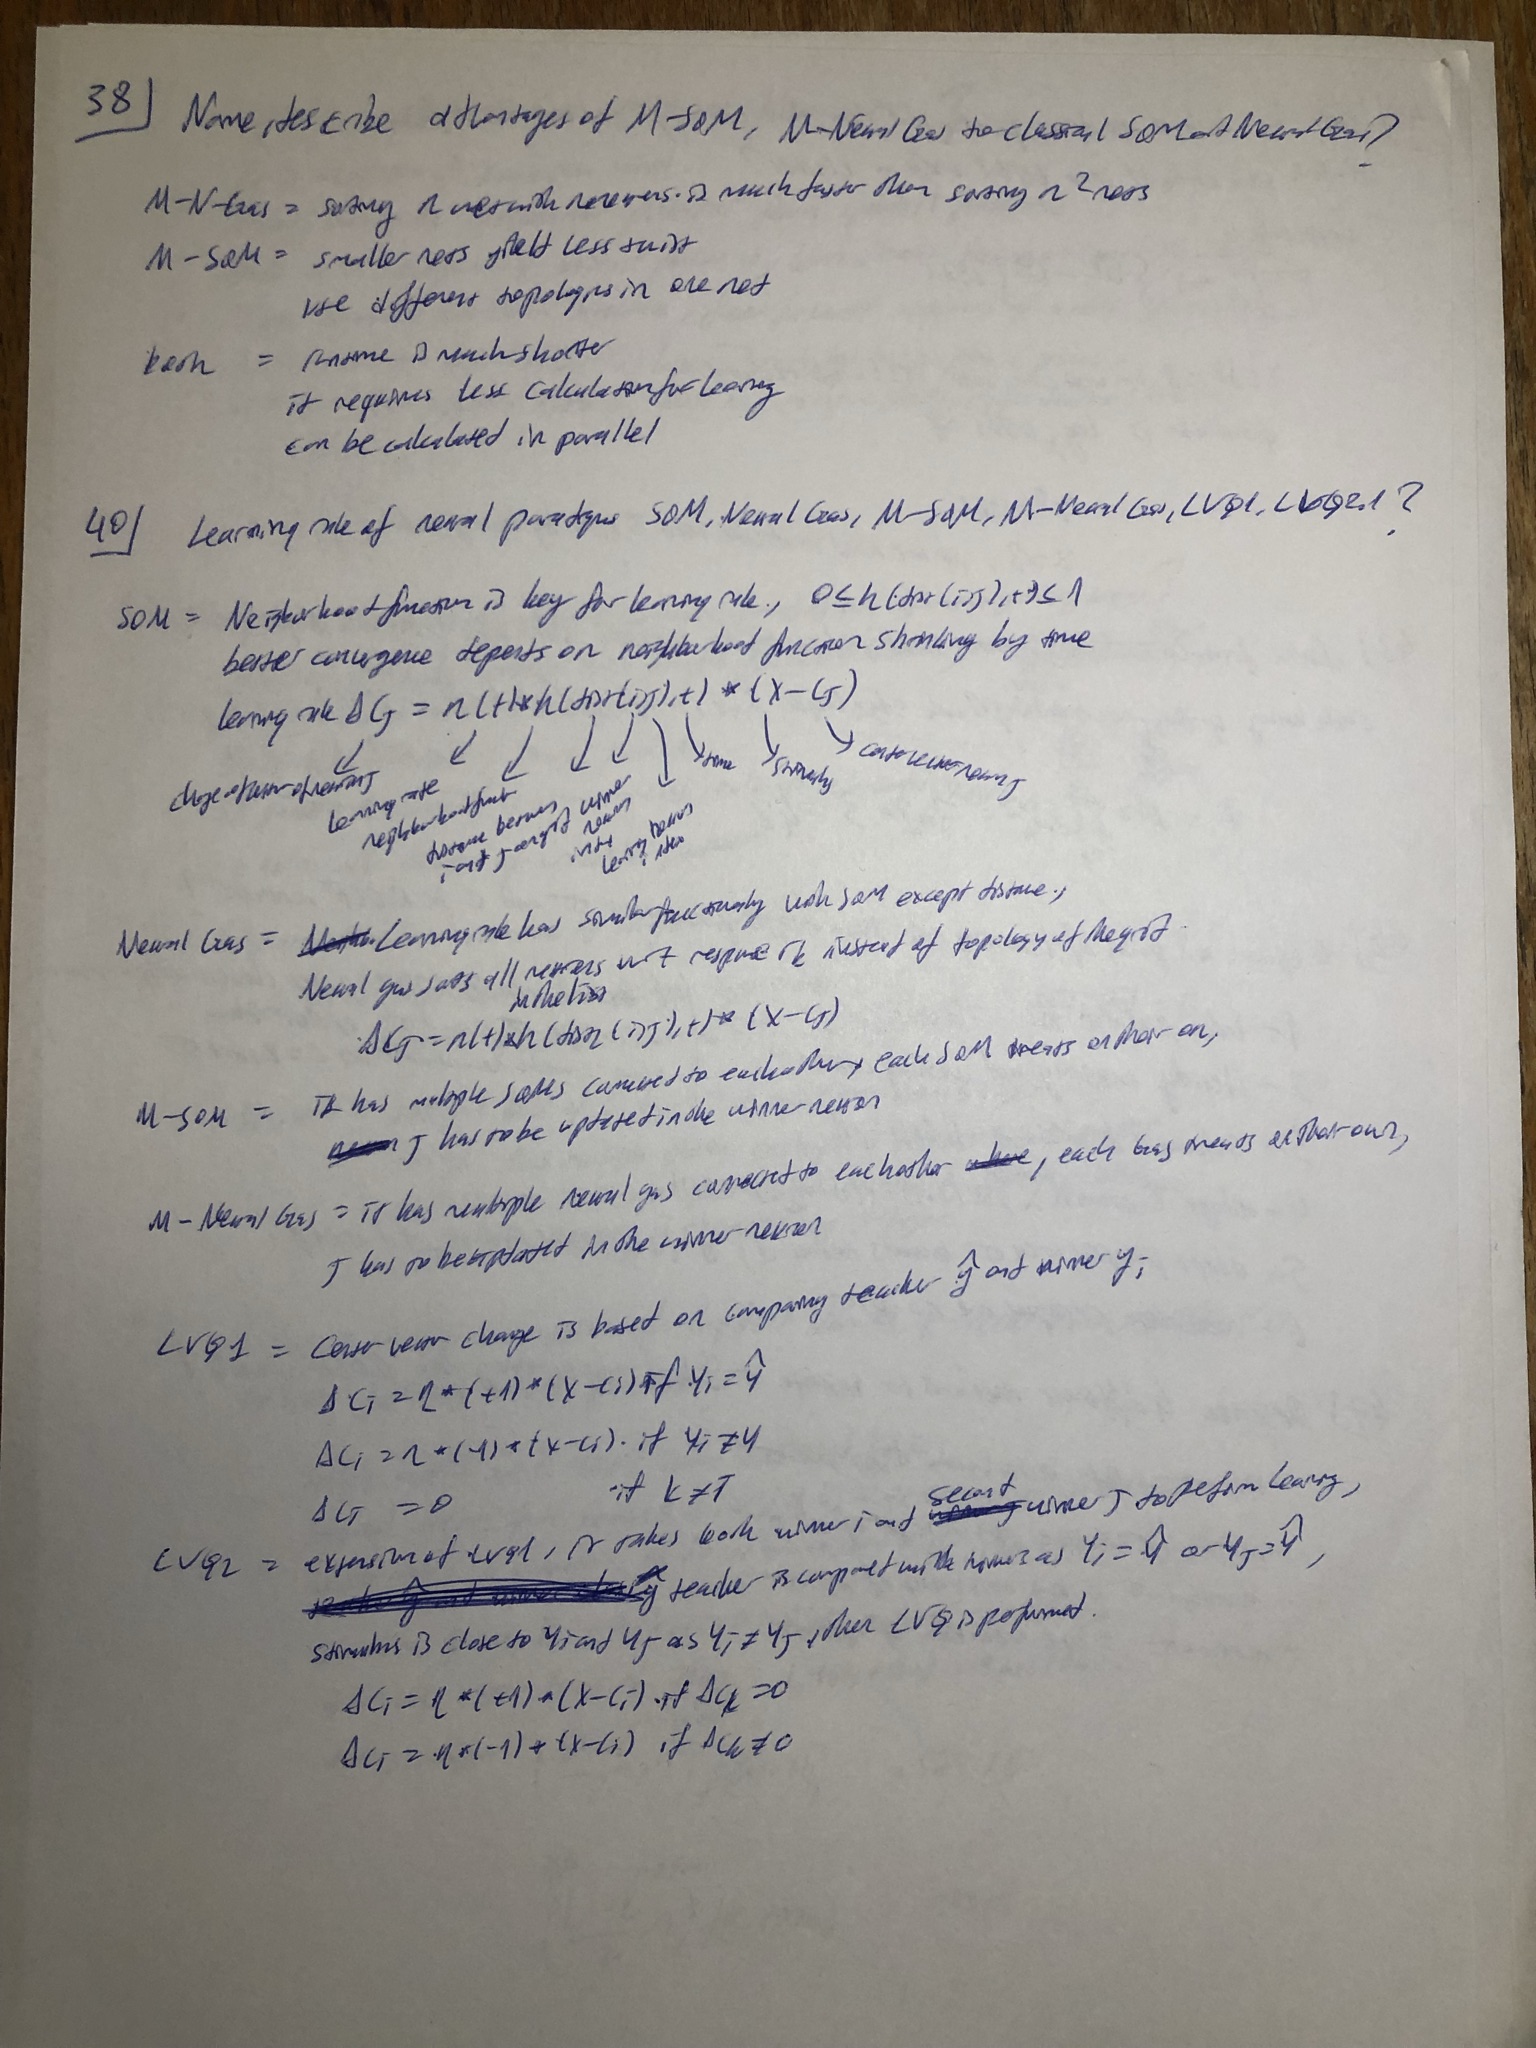 38) Name, describe advantages of M-SOM, M-Neural Gas to classical SOM and Neural Gas?
M-N-Gas = sorting n nets with neurons is much faster than sorting n² nets
M-SOM = smaller nets yield less twist
use different topologies in one net
both = runtime is much shorter
it requires less calculation for learning
can be calculated in parallel
40) Learning rule of neural paradigms SOM, Neural Gas, M-SOM, M-Neural Gas, LVQ1, LVQ2.1?
SOM = Neighborhood function is key for learning rule., 0≤h(dist(i,j),t)≤1
better convergence depends on neighborhood function shrinking by time
learning rule ΔCj = η(t)*h(dist(i,j),t) * (X-Cj)
change of center of neuron j
learning rate
neighborhood funct
distance between i and j on grid
winner neuron
learning neuron
time
stimuli
center vector neuron j
Neural Gas = Learning rule has similar functionality with SOM except distance.,
Neural gas sorts all neurons wrt response rk instead of topology of the grid.
in the list
ΔCj = η(t)*h(dist(i,j),t)* (X-Cj)
M-SOM = It has multiple SOMs connected to each other, each SOM treats on their own,
j has to be updated in the winner neuron
M-Neural Gas = it has multiple neural gas connected to each other, each Gas treats on their own,
j has to be updated in the winner neuron
LVQ1 = Center vector change is based on comparing teacher ŷ and winner yi
ΔCi = η*(+1)*(X-Ci) if yi = ŷ
ΔCi = η*(-1)*(X-Ci). if yi ≠ y
ΔCi = 0 if k ≠ i
LVQ2 = extension of LVQ1, it takes both winner i and second winner j to perform learning,
ŷ teacher is compared with winners as yi = ŷ or yj = ŷ,
stimulus is close to yi and yj as yi ≠ yj, then LVQ is performed.
ΔCi = η*(+1)*(X-Ci). if ΔCk = 0
ΔCi = η*(-1)*(X-Ci) if ΔCk ≠ 0